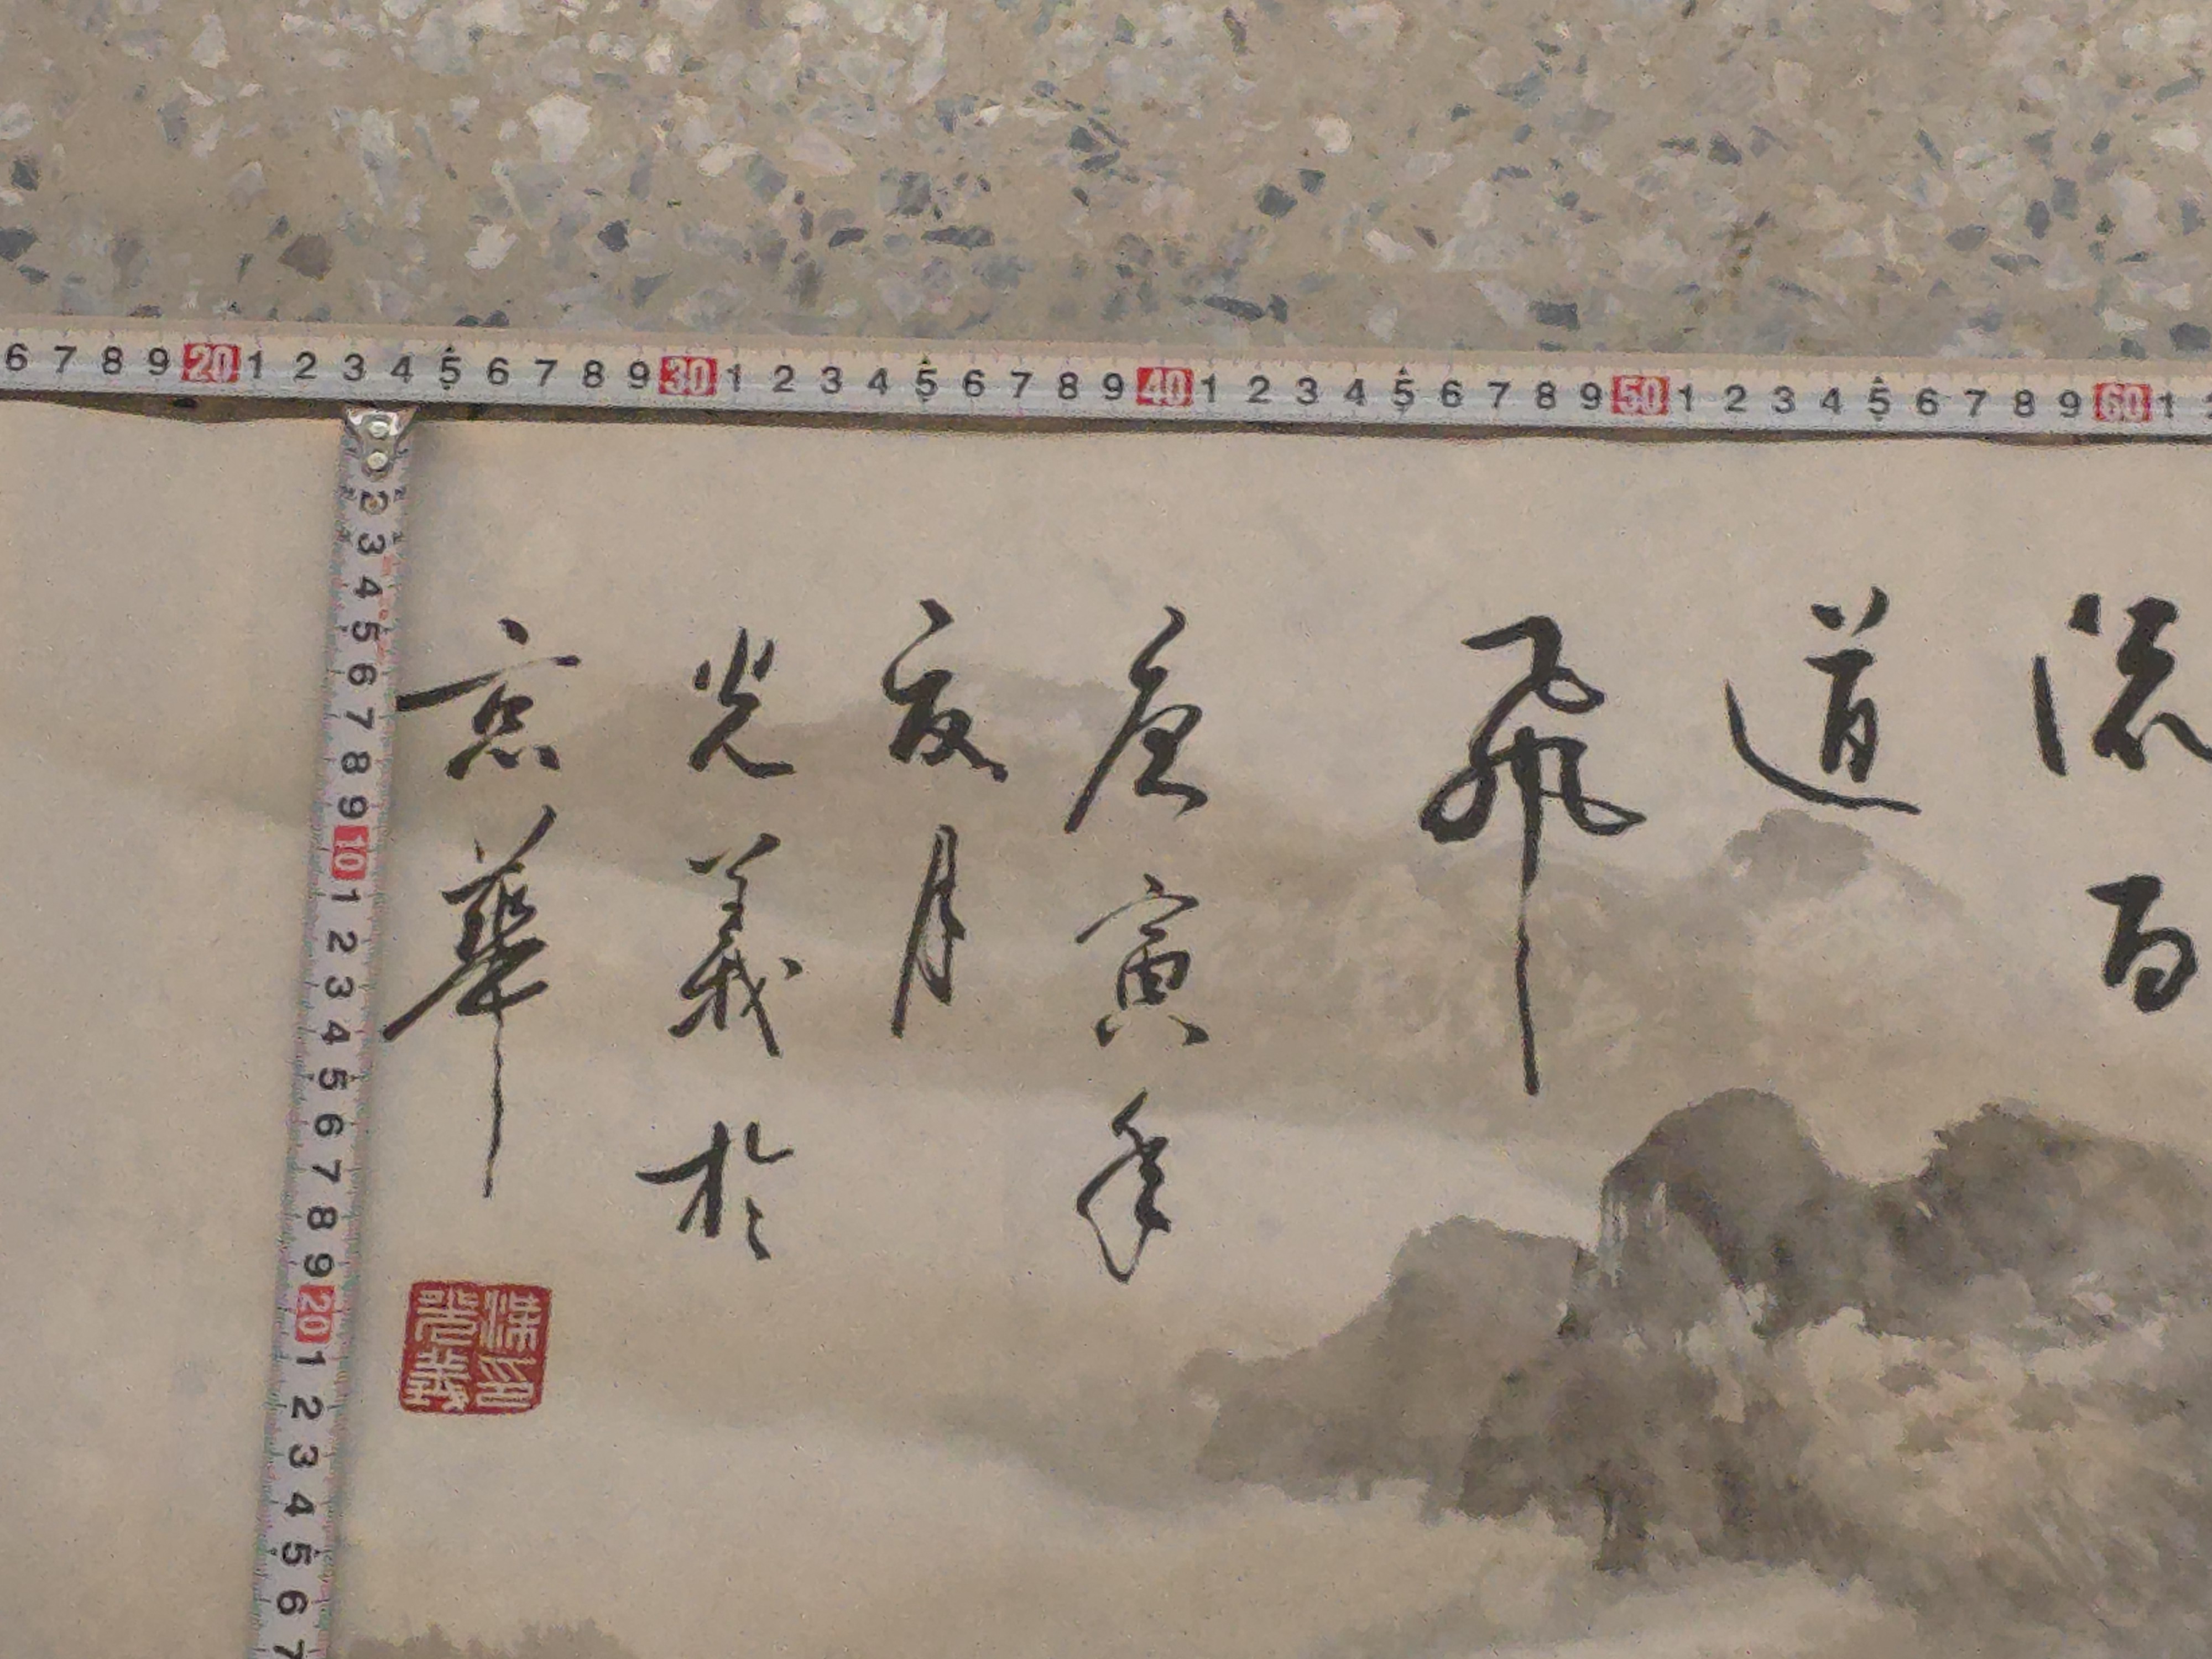 6 7 8 9 20 1 2 3 4 5 6 7 8 9 30 1 2 3 4 5 6 7 8 9 40 1 2 3 4 5 6 7 8 9 50 1 2 3 4 5 6 7 8 9 60 1
流百
道
飛
庚寅年
夏月
光義於
京華
印
光義
2 3 4 5 6 7 8 9 10 1 2 3 4 5 6 7 8 9 20 1 2 3 4 5 6 7